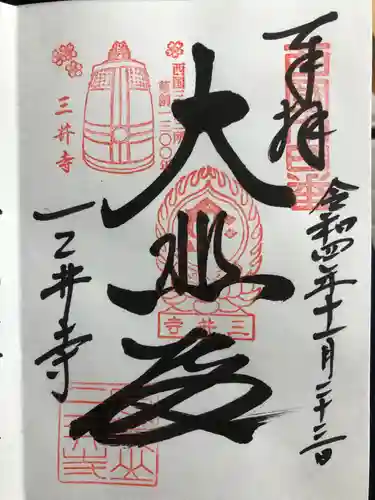 奉拝
令和四年十一月二十三日
大悲殿
三井寺
三井寺
西国三十三所
草創一三〇〇年
三井寺